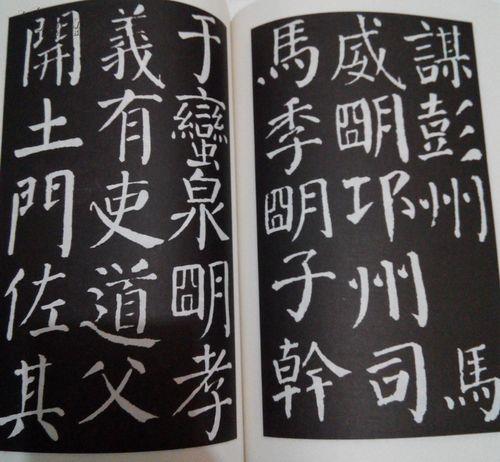 于蠻泉明孝
義有吏道父
開土門佐其
謀彭州馬
威明邛州司
馬季明子幹